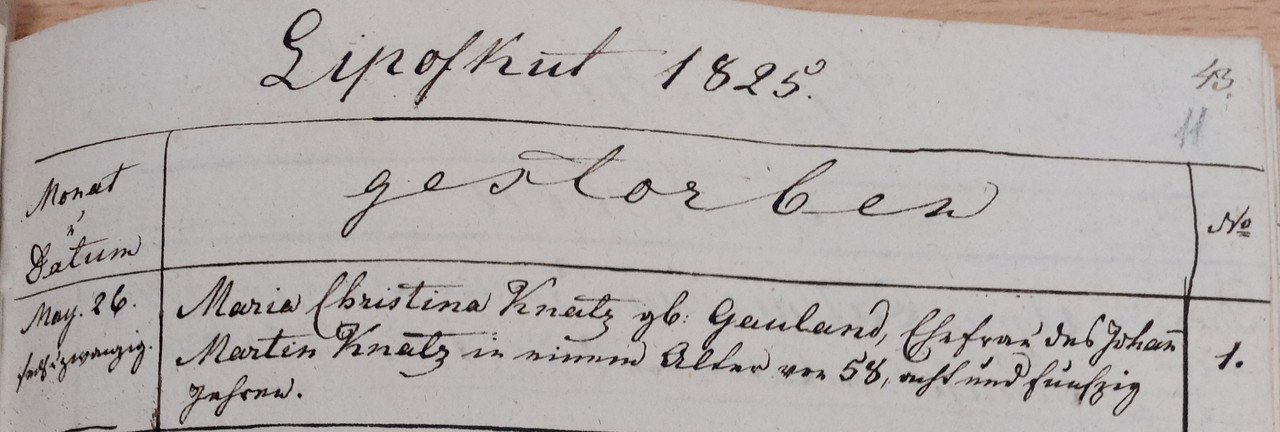 Lipofkut 1825.
43.
11
Monat
u
Datum
gestorben
No
May. 26.
sechszwanzig.
Maria Christina Knatz gb: Gauland, Ehefrau des Johan̄
Martin Knatz in einem Alter von 58, acht und fünfzig
Jahren.
1.